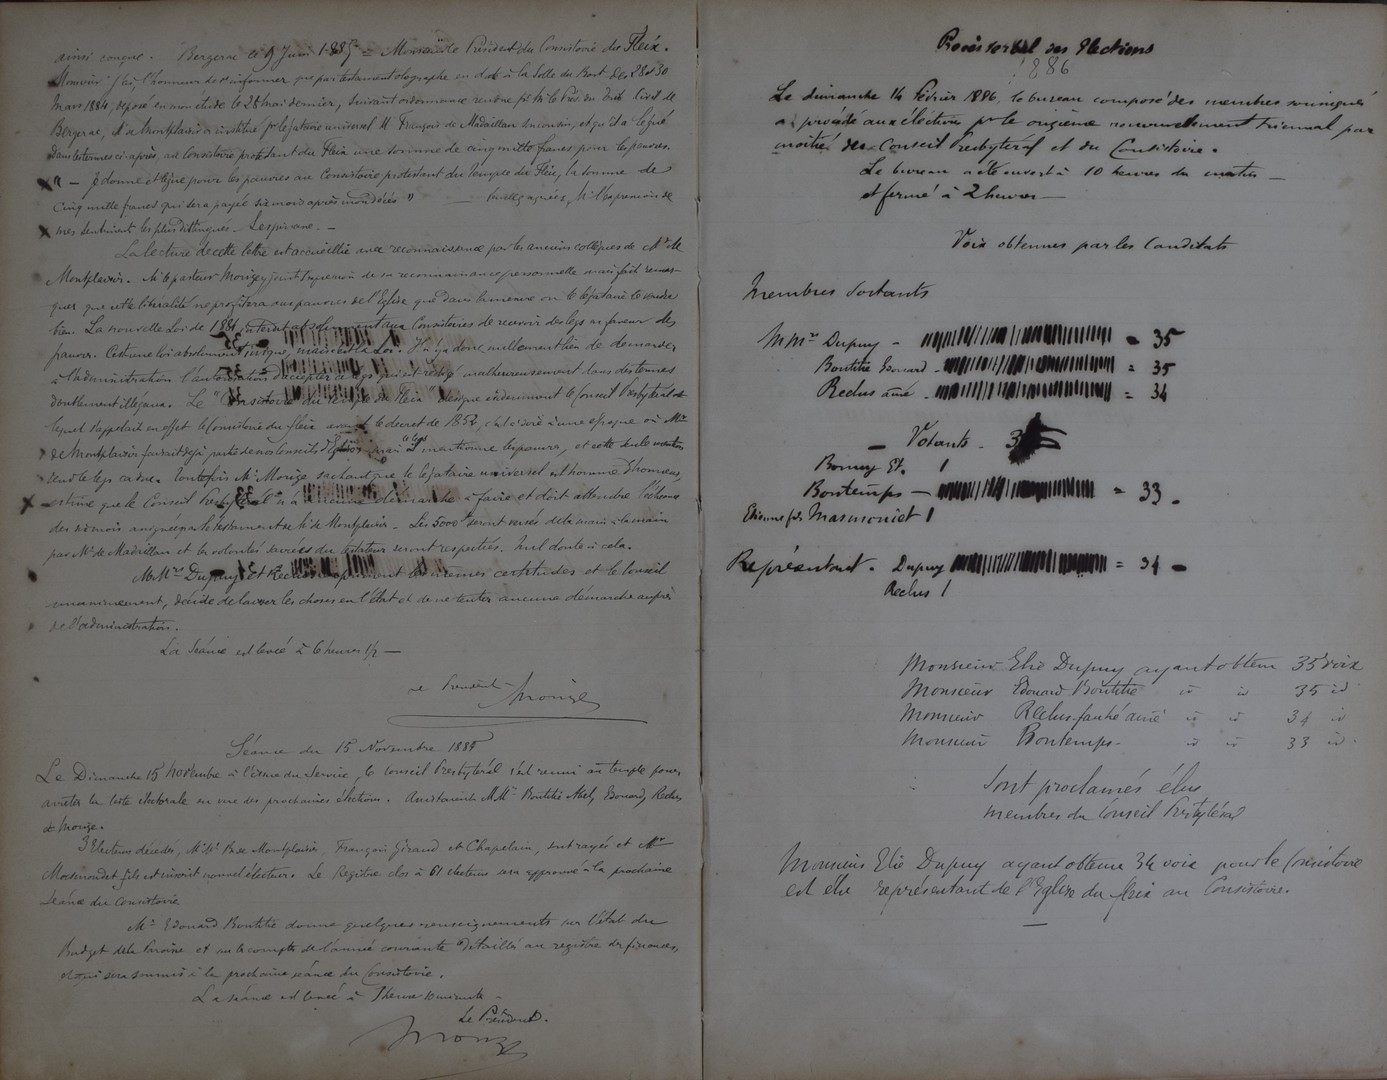 ainsi conçue. Bergerac le 9 Juin 1885 = Monsieur le Président du Consistoire du Fleix.
Monsieur j'ai l'honneur de vous informer que par testament olographe en date à la Salle du Bost des 28 et 30
Mars 1884, déposé en mon étude le 28 mai dernier, suivant ordonnance rendue pr Mr le Prés. du Trib. Civil de
Bergerac, Mr de Montplaisir a institué pr légataire universel M. François de Madaillan son cousin, et qu'il a légué
dans les termes ci-après, au Consistoire protestant du Fleix une somme de cinq mille francs pour les pauvres.
" — Je donne et lègue pour les pauvres au Consistoire protestant du Temple du Fleix, la somme de
Cinq mille francs qui sera payée six mois après mon décès " — Veuillez agréer, Mr l'expression de
mes sentiments les plus distingués. Lespinasse. —
La lecture de cette lettre est accueillie avec reconnaissance par les anciens collègues de Mr de
Montplaisir. Mr le pasteur Morize y joint l'expression de sa reconnaissance personnelle mais fait remar-
quer que cette libéralité ne profitera aux pauvres de l'Eglise que dans la mesure où le légataire le voudra
bien. La nouvelle Loi de 1884 interdit absolument aux Consistoires de recevoir des legs en faveur des
pauvres. C'est une loi absolument inique, mais c'est la Loi. Il n'y a donc nullement lieu de demander
à l'administration l'autorisation d'accepter ce legs qui est rédigé malheureusement dans des termes
doublement illégaux. Le "Consistoire du temple du Fleix" désigne évidemment le Conseil Presbytéral
lequel s'appelait en effet le Consistoire du Fleix avant le decret de 1852, c'est à dire à une époque où Mr
de Montplaisir faisait déjà partie de nos conseils d'Eglise mais le legs mentionne les pauvres, et cette seule mention
rend le legs caduc. Toutefois Mr Morize sachant que le légataire universel est homme d'honneur
estime que le Conseil Presbytéral n'a aucune démarche à faire et doit attendre l'échéance
des six mois assignée par le testament de Mr de Montplaisir. Les 5000f seront versés de la main à la main
par Mr de Madaillan et les volontés sacrées du testateur seront respectées. Nul doute à cela.
M.Mrs Dupuy et Reclus expriment les mêmes certitudes et le Conseil
unanimement, décide de laisser les choses en l'état et de ne tenter aucune démarche auprès
de l'administration.
La Séance est levée à 6 heures 1/2 —
Le Président
Morize
Séance du 15 Novembre 1885
Le Dimanche 15 novembre à l'issue du Service, le conseil Presbytéral s'est reuni au temple pour
arrêter la liste électorale en vue des prochaines élections. Assistaient M.Mrs Boutitié Abel, Edouard, Reclus
et Morize.
3 Electeurs décédés, M.Mrs de Montplaisir, François Giraud et Chapelain, sont rayés et Mr
Masmondet fils est inscrit nouvel électeur. Le Registre clos à 61 electeurs sera approuvé à la prochaine
Séance du Consistoire
Mr Edouard Boutitié donne quelques renseignements sur l'état du
Budget de la Paroisse et sur le compte de l'année courante détaillé au registre des finances,
et qui sera soumis à la prochaine séance du Consistoire.
La séance est levée à 1 heure 10 minutes —
Le Président.
Morize
Procès verbal des Elections
1886
Le dimanche 14 Février 1886, le bureau composé des membres soussignés
a procédé aux élections pr le onzième renouvellement triennal par
moitié du Conseil Presbytéral et du Consistoire.
Le bureau a été ouvert à 10 heures du matin —
et fermé à 2 heures —
Voix obtenues par les Candidats
Membres Sortants
M.Mrs Dupuy — = 35
Boutitié Edouard — = 35
Reclus aîné — = 34
— Votants — 35
Bonny Et. 1
Bontemps — = 33 —
Etienne fils Masmondet 1
Représentant. Dupuy = 34 —
Reclus 1
Monsieur Elie Dupuy ayant obtenu 35 voix
Monsieur Edouard Boutitié id id 35 id
Monsieur Reclus-fauché aîné id id 34 id
Monsieur Bontemps — id id 33 id.
Sont proclamés élus
membres du Conseil Presbytéral
Monsieur Elie Dupuy ayant obtenu 34 voix pour le Consistoire
est élu représentant de l'Eglise du fleix au Consistoire.